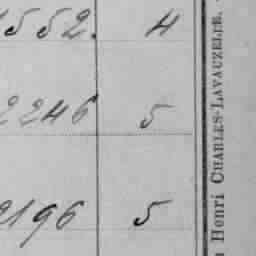 552. 4
2246 5
2196 5
Henri CHARLES-LAVAUZELLE.